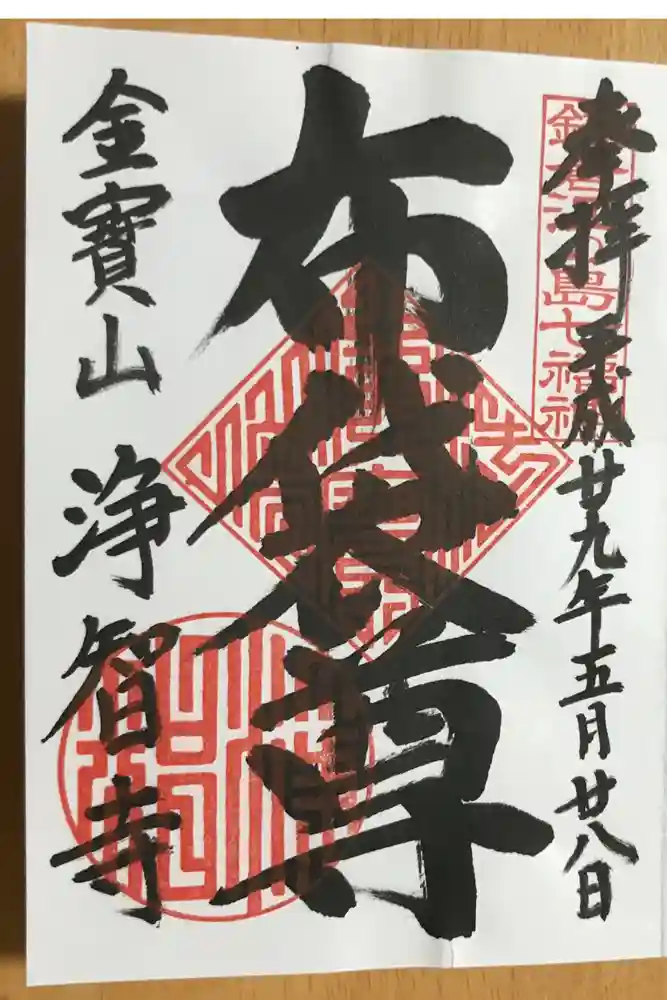 奉拝 平成廿九年五月廿八日
鎌倉江の島七福神
布袋尊
金寶山 浄智寺